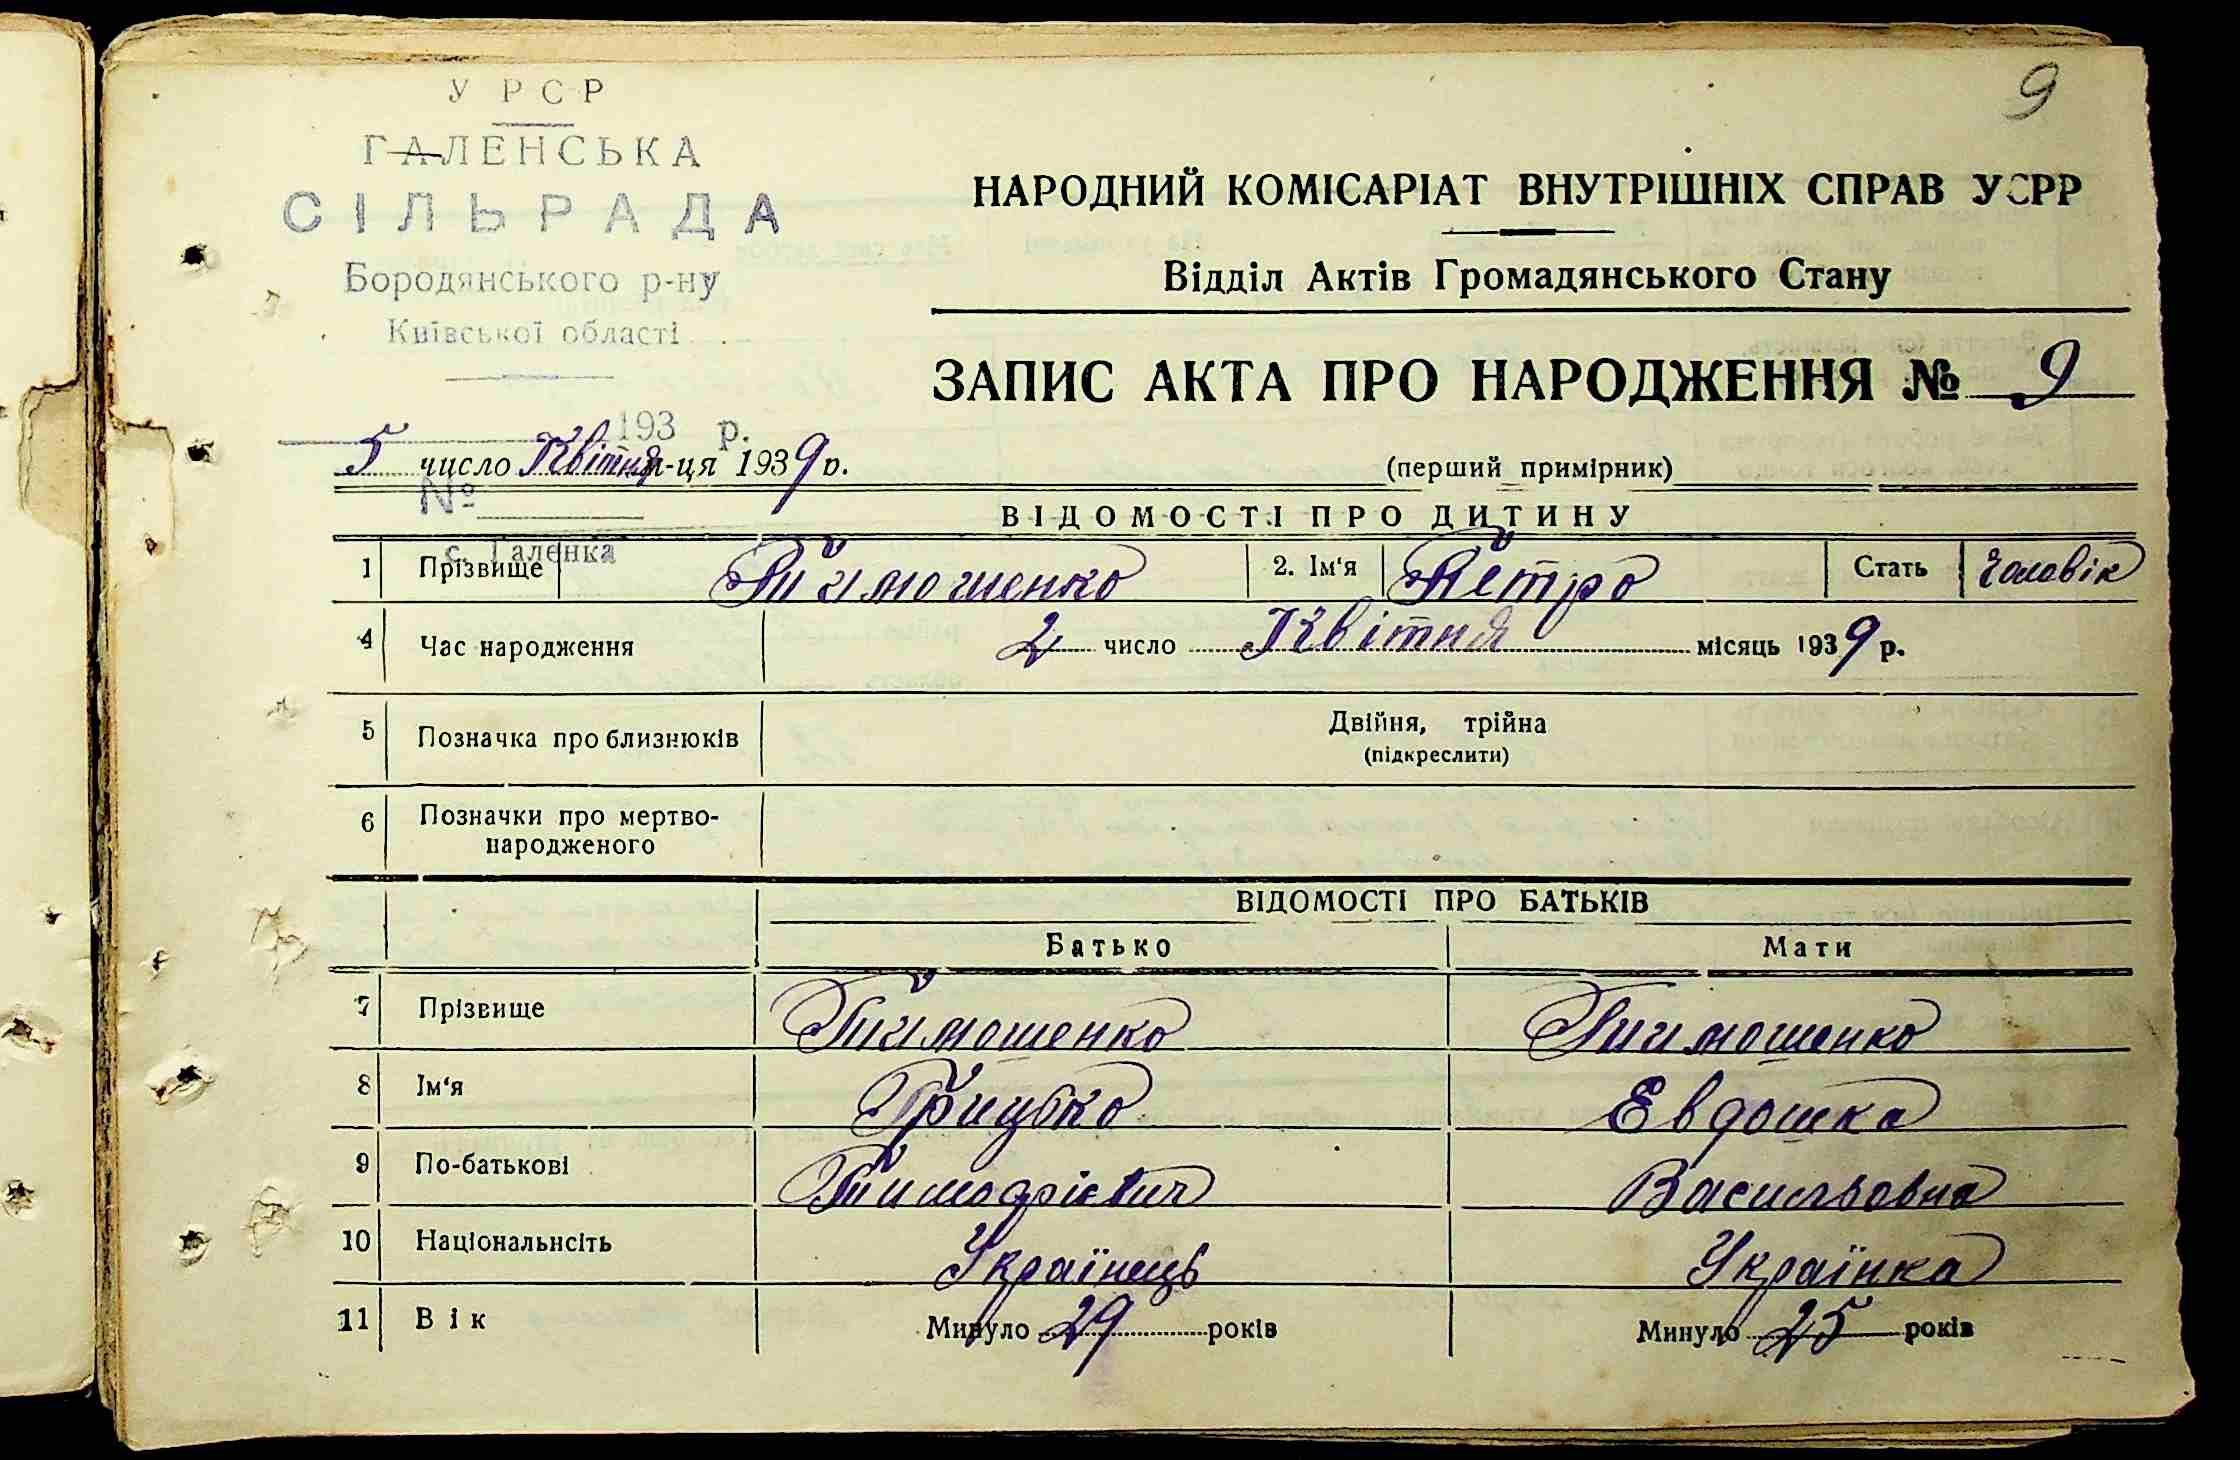 9
У Р С Р
ГАЛЕНСЬКА
СІЛЬРАДА
Бородянського р-ну
Київської області
193 р.
№
с. Галенка
НАРОДНИЙ КОМІСАРІАТ ВНУТРІШНІХ СПРАВ УСРР
Відділ Актів Громадянського Стану
ЗАПИС АКТА ПРО НАРОДЖЕННЯ № 9
5 число Квітня м-ця 1939 р.
(перший примірник)
ВІДОМОСТІ ПРО ДИТИНУ
1 Прізвище Тимошенко 2. Ім'я Петро Стать Чоловік
4 Час народження 2 число Квітня місяць 1939 р.
5 Позначка про близнюків Двійня, трійна
(підкреслити)
6 Позначки про мертво-
народженого
ВІДОМОСТІ ПРО БАТЬКІВ
Батько Мати
7 Прізвище Тимошенко Тимошенко
8 Ім'я Грицько Евдошка
9 По-батькові Тимофієвич Васильовна
10 Національнсіть Українець Українка
11 Вік Минуло 29 років Минуло 25 років